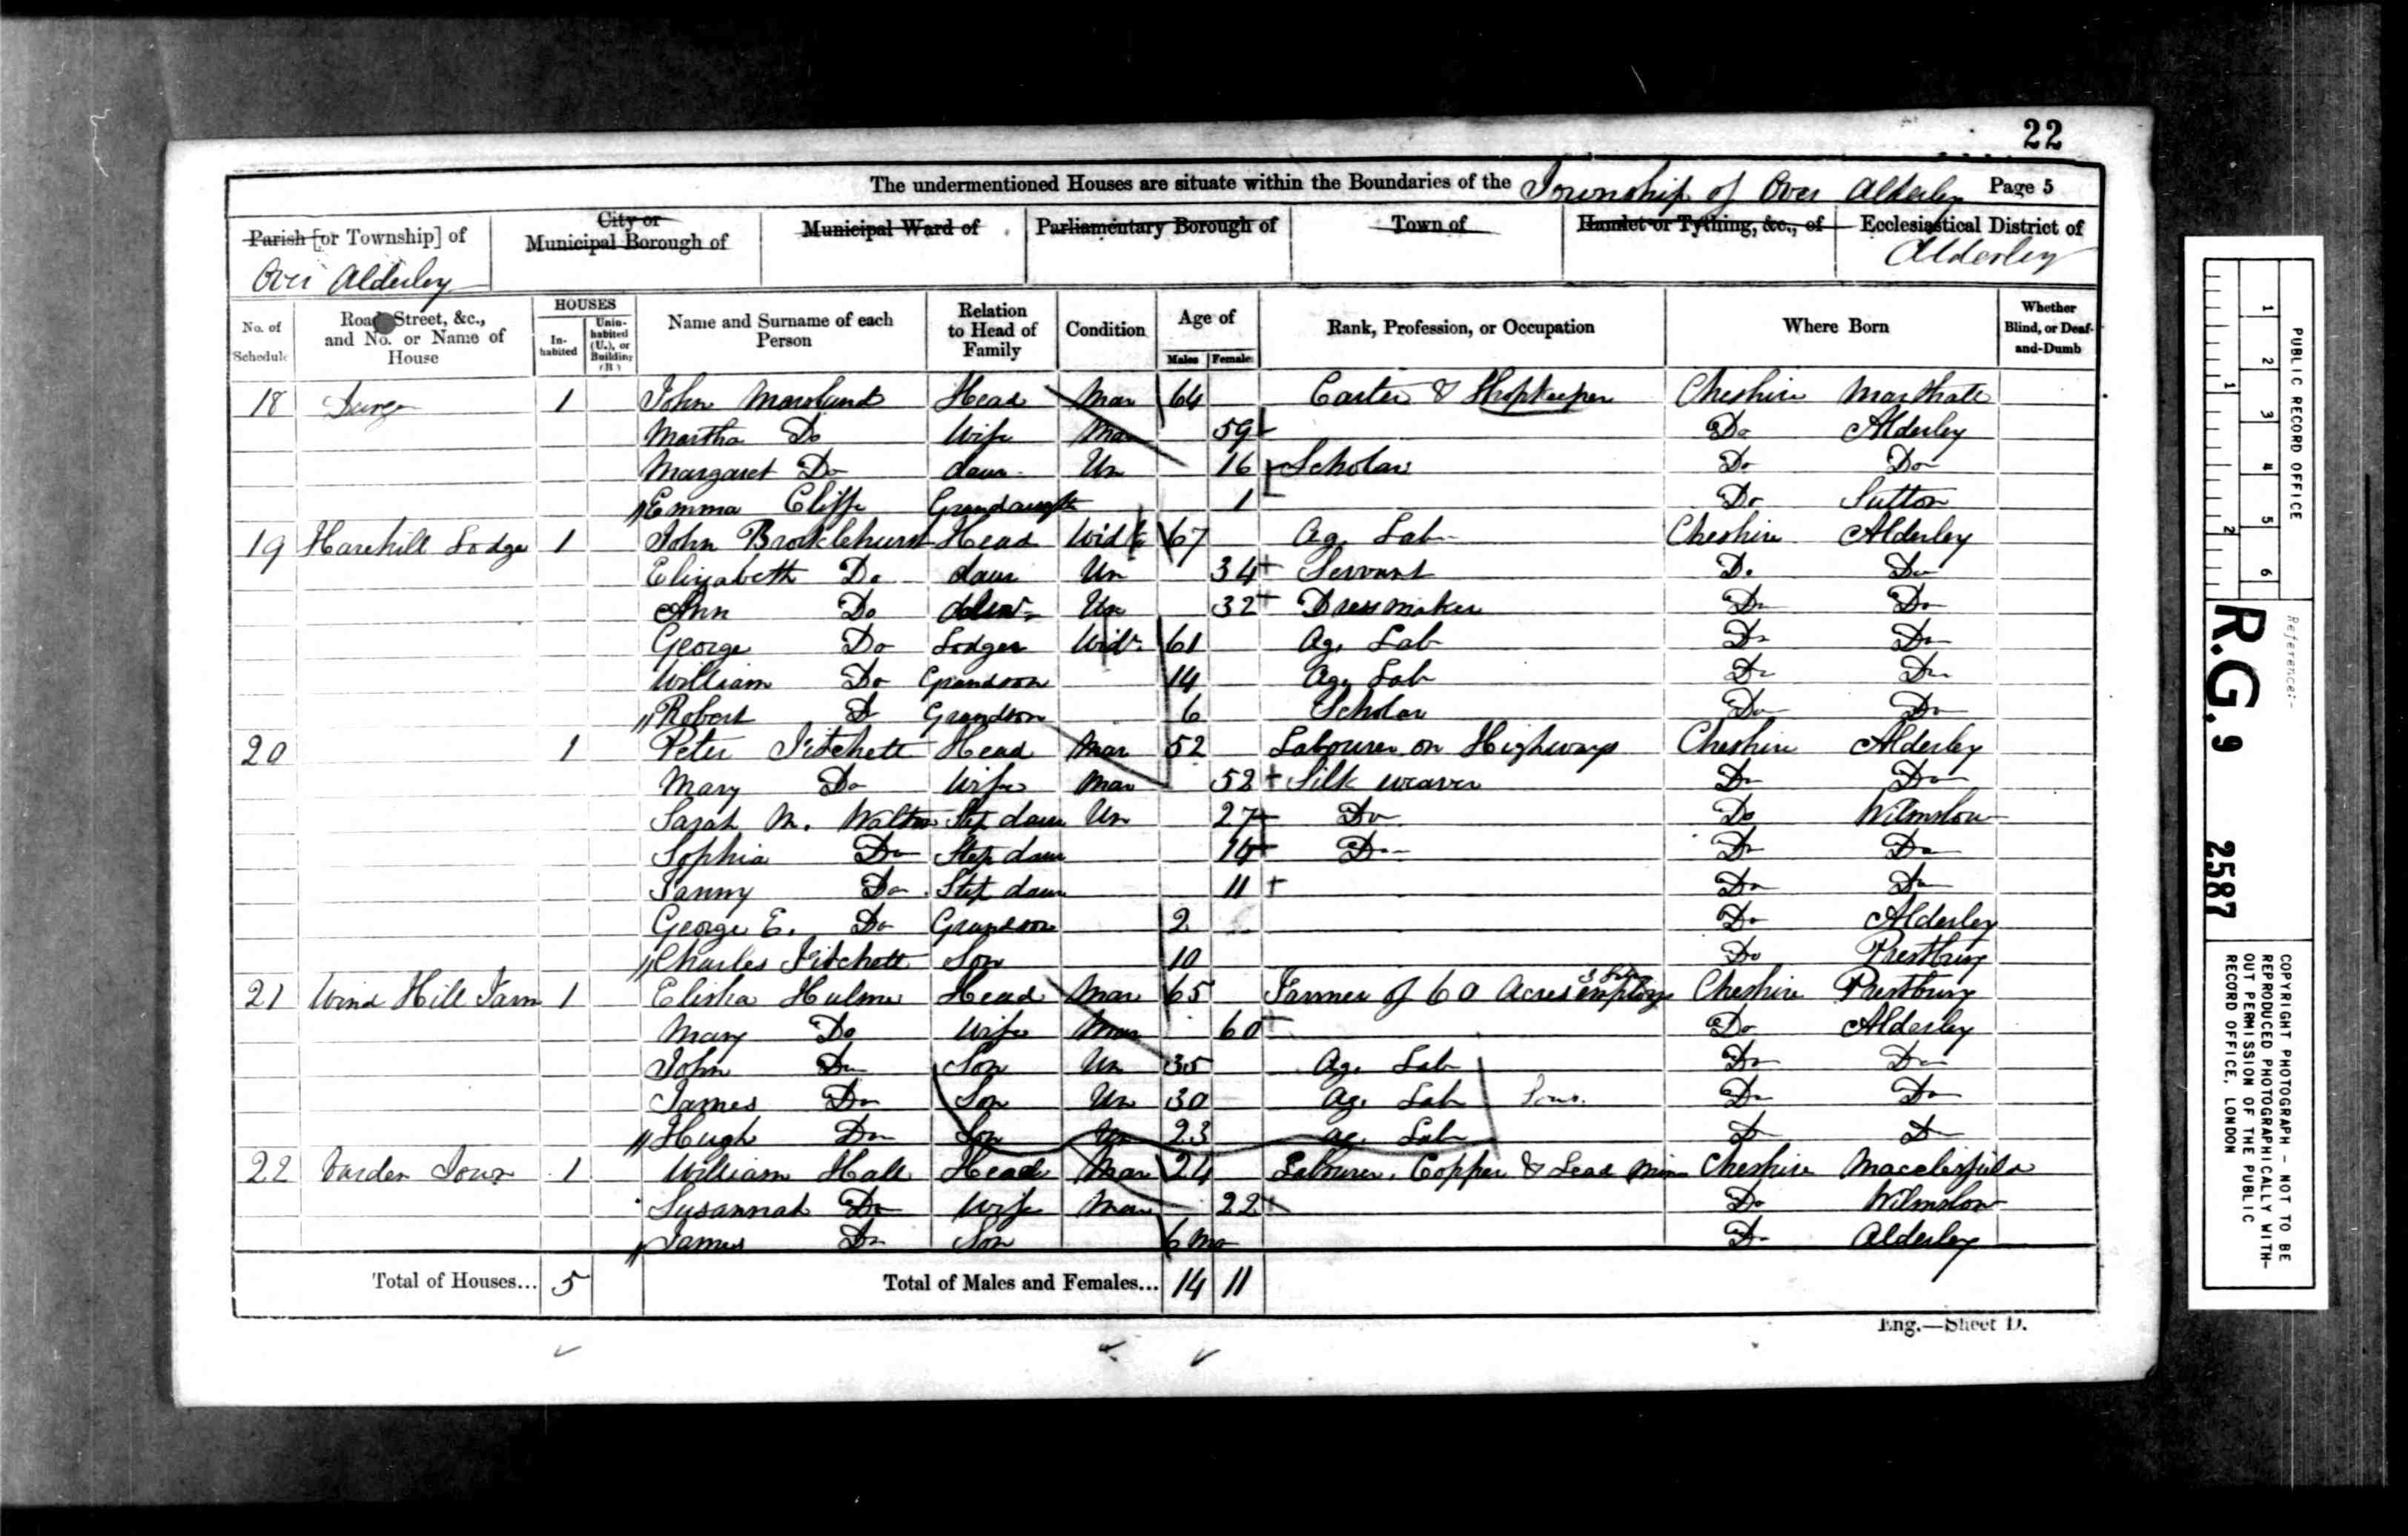 22
The undermentioned Houses are situate within the Boundaries of the Township of Over Alderley Page 5
Parish [or Township] of
Over Alderley
City or
Municipal Borough of
Municipal Ward of
Parliamentary Borough of
Town of
Hamlet or Tything, &c., of
Ecclesiastical District of
Alderley
No. of Schedule
Road, Street, &c., and No. or Name of House
HOUSES
Inhabited
Uninhabited (U.), or Building (B.)
Name and Surname of each Person
Relation to Head of Family
Condition
Age of
Males Females
Rank, Profession, or Occupation
Where Born
Whether Blind, or Deaf-and-Dumb
18 1 John Head Mar 64 Carter & Shopkeeper Cheshire Marthall
Martha Do Wife Mar 59 Do Alderley
Margaret Do daur Un 16 Scholar Do Do
Emma Cliffe Grandaught 1 Do Sutton
19 Harehill Lodge 1 John Brocklehurst Head Widr 67 Ag. Lab Cheshire Alderley
Elizabeth Do daur Un 34 Servant Do Do
Ann Do daur Un 32 Dressmaker Do Do
George Do Lodger Widr 61 Ag. Lab Do Do
William Do Grandson 14 Ag. Lab Do Do
Robert Do Grandson 6 Scholar Do Do
20 1 Peter Fitchett Head Mar 52 Labourer on Highways Cheshire Alderley
Mary Do Wife Mar 52 Silk weaver Do Do
Sarah M. Walton Step daur Un 27 Do Do Wilmslow
Sophia Do Step daur Do Do Do
Fanny Do Step daur 11 Do Do
George E. Do Grandson 2 Do Alderley
Charles Fitchett Son 10 Do Prestbury
21 Wind Hill Farm 1 Elisha Hulme Head Mar 65 Farmer of 60 Acres employs 3 Cheshire Prestbury
Mary Do Wife Mar 60 Do Alderley
John Do Son Un 35 Ag. Lab Do Do
James Do Son Un 30 Ag. Lab Sons. Do Do
Hugh Do Son Un 23 Ag. Lab Do Do
22 Varden Town 1 William Hall Head Mar 24 Labourer, Copper & Lead Mine Cheshire Macclesfield
Susannah Do Wife Mar 22 Do Wilmslow
James Do Son 6 Mo Do Alderley
Total of Houses... 5
Total of Males and Females... 14 11
Eng.—Sheet D.
PUBLIC RECORD OFFICE
1 2 3 4 5 6
1 2
Reference:-
R.G. 9 2587
COPYRIGHT PHOTOGRAPH - NOT TO BE
REPRODUCED PHOTOGRAPHICALLY WITH-
OUT PERMISSION OF THE PUBLIC
RECORD OFFICE, LONDON